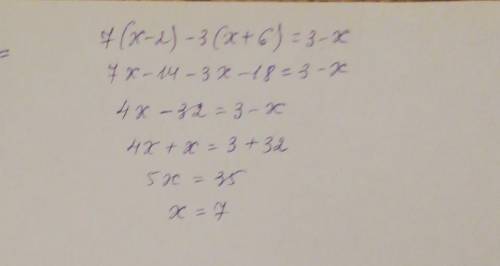 7(x-2)-3(x+6)=3-x
=
7x-14-3x-18=3-x
4x-32=3-x
4x+x=3+32
5x=35
x=7